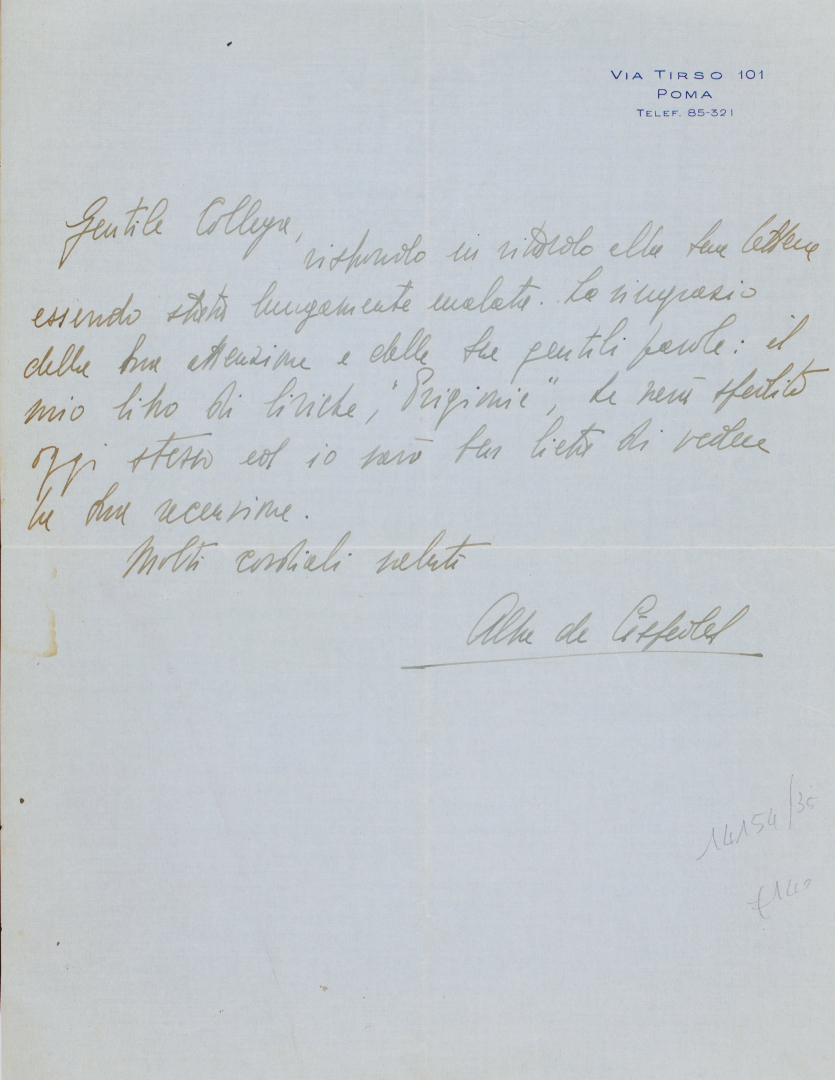 VIA TIRSO 101
ROMA
TELEF. 85-321
Gentile Collega,
rispondo in ritardo alla Sua lettera
essendo stata lungamente malata. La ringrazio
della Sua attenzione e delle Sue gentili parole: il
mio libro di liriche, "Prigionie", Le verrà spedito
oggi stesso ed io sarò ben lieta di vedere
la Sua recensione.
Molti cordiali saluti
Alba de Céspedes
14154/35
£140